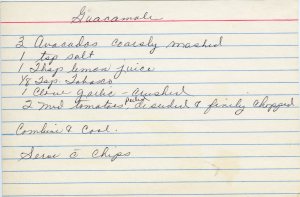 Guacamole
2 Avocados coarsely mashed
1 tsp salt
1 Tbsp lemon juice
1/8 Tsp. Tabasco
1 Clove garlic - crushed
2 Med tomatoes peeled deseeded & finely chopped
Combine & Cool.
Serve c̄ Chips